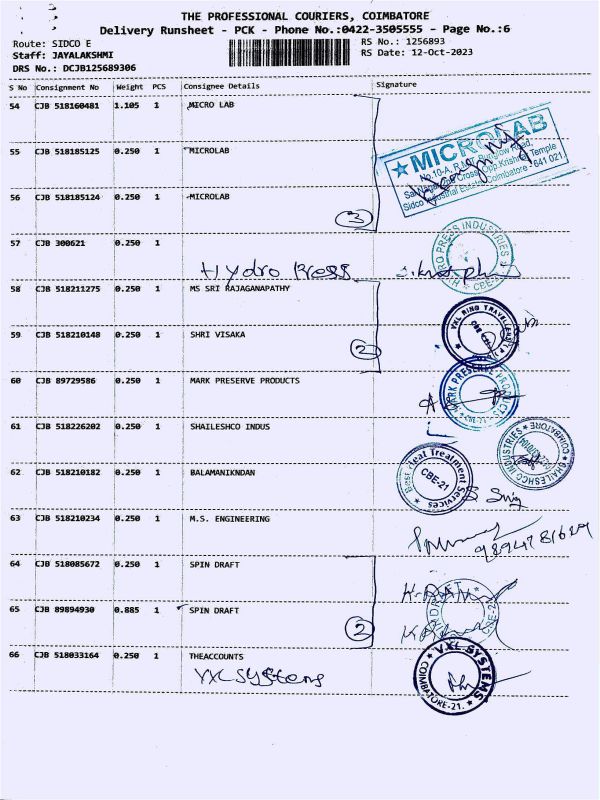 THE PROFESSIONAL COURIERS, COIMBATORE
Delivery Runsheet - PCK - Phone No.:0422-3505555 - Page No.:6
Route: SIDCO E
RS No.: 1256893
Staff: JAYALAKSHMI
RS Date: 12-Oct-2023
DRS No.: DCJB125689306
S No Consignment No Weight PCS Consignee Details Signature
54 CJB 518160481 1.105 1 MICRO LAB
55 CJB 518185125 0.250 1 MICROLAB
MICROLAB
No.10-A, R.M.T. Bunglow Road,
Sai Nagar Cross, Opp.Krishna Temple
Sidco Industrial Estate, Coimbatore - 641 021
56 CJB 518185124 0.250 1 MICROLAB
3
57 CJB 300621 0.250 1
Hydro Press
HYDRO PRESS INDUSTRIES CBE-21
58 CJB 518211275 0.250 1 MS SRI RAJAGANAPATHY
59 CJB 518210148 0.250 1 SHRI VISAKA
2
VXL RING TRAVELLERS
60 CJB 89729586 0.250 1 MARK PRESERVE PRODUCTS
MARK PRESERVE PRODUCTS CBE-21
61 CJB 518226202 0.250 1 SHAILESHCO INDUS
SHAILESHCO INDUSTRIES COIMBATORE
62 CJB 518210182 0.250 1 BALAMANIKNDAN
Heat Treatment Services CBE-21
63 CJB 518210234 0.250 1 M.S. ENGINEERING
64 CJB 518085672 0.250 1 SPIN DRAFT
65 CJB 89894930 0.885 1 SPIN DRAFT
2
66 CJB 518033164 0.250 1 THEACCOUNTS
VXL SYSTEMS
VXL SYSTEMS COIMBATORE-21.